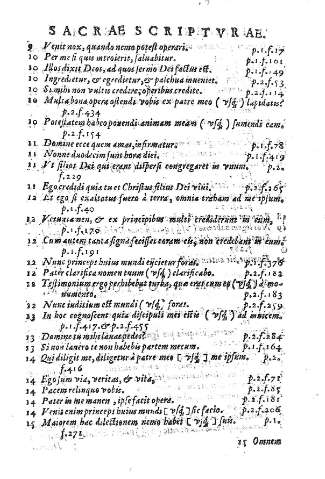 SACRAE SCRIPTVRAE.
9 Venit nox, quando nemo potest operari. p.1.f.17
10 Per me si quis introierit, saluabitur. p.1.f.101
10 Illos dixit Deos, ad quos sermo Dei factus est. p.1.f.49
10 Ingredietur, & egredietur, & pascua inueniet. p.2.f.53
10 Si mihi non vultis credere, operibus credite. p.2.f.114
10 Multa bona opera ostendi vobis ex patre meo (vsq́ʒ) lapidatis?
p.2.f.434
10 Potestatem habeo ponendi animam meam (vsq́ʒ) sumendi eam.
p.2.f.154
11 Domine ecce quem amas, infirmatur. p.1.f.78
11 Nonne duodecim sunt horæ diei. p.1.f.419
11 Vt filios Dei qui erant dispersi congregaret in vnum. p.2.
f.229
11 Ego credidi quia tu es Christus filius Dei viui. p.2.f.265
12 Et ego si exaltatus fuero à terra, omnia traham ad me ipsum.
p.1.f.40
12 Veruntamen, & ex principibus multi crediderunt in eum,
p.1.f.170
12 Cum autem tanta signa fecisset coram eis, non credebant in eum.
p.1.f.191
12 Nunc princeps huius mundi eijcietur foras. p.1.f.376
12 Pater clarifica nomen tuum (vsq́ʒ) clarificabo. p.2.f.182
12 Testimonium ergo perhibebat turba, quæ erat cum eo (vsq́ʒ) à mo-
numento. p.2.f.183
12 Nunc iudicium est mundi (vsq́ʒ) foras. p.2.f.259
13 In hoc cognoscent quia discipuli mei estis (vsq́ʒ) ad inuicem.
p.1.f.417. & p.2.f.455
13 Domine tu mihi lauas pedes? p.2.f.284
13 Si non lauero te non habebis partem mecum. p.1.f.164
14 Qui diligit me, diligetur à patre meo [vsq́ʒ] me ipsum. p.2.
f.416
14 Ego sum via, veritas, & vita. p.2.f.71
14 Pacem relinquo vobis. p.2.f.85
14 Pater in me manen, ipse facit opera. p.2.f.181
14 Venit enim princeps huius mundi [vsq́ʒ] sic facio. p.2.f.206
15 Maiorem hac dilectionem nemo habet [vsq́ʒ] suis. p.1.
f.272
15 Omnem